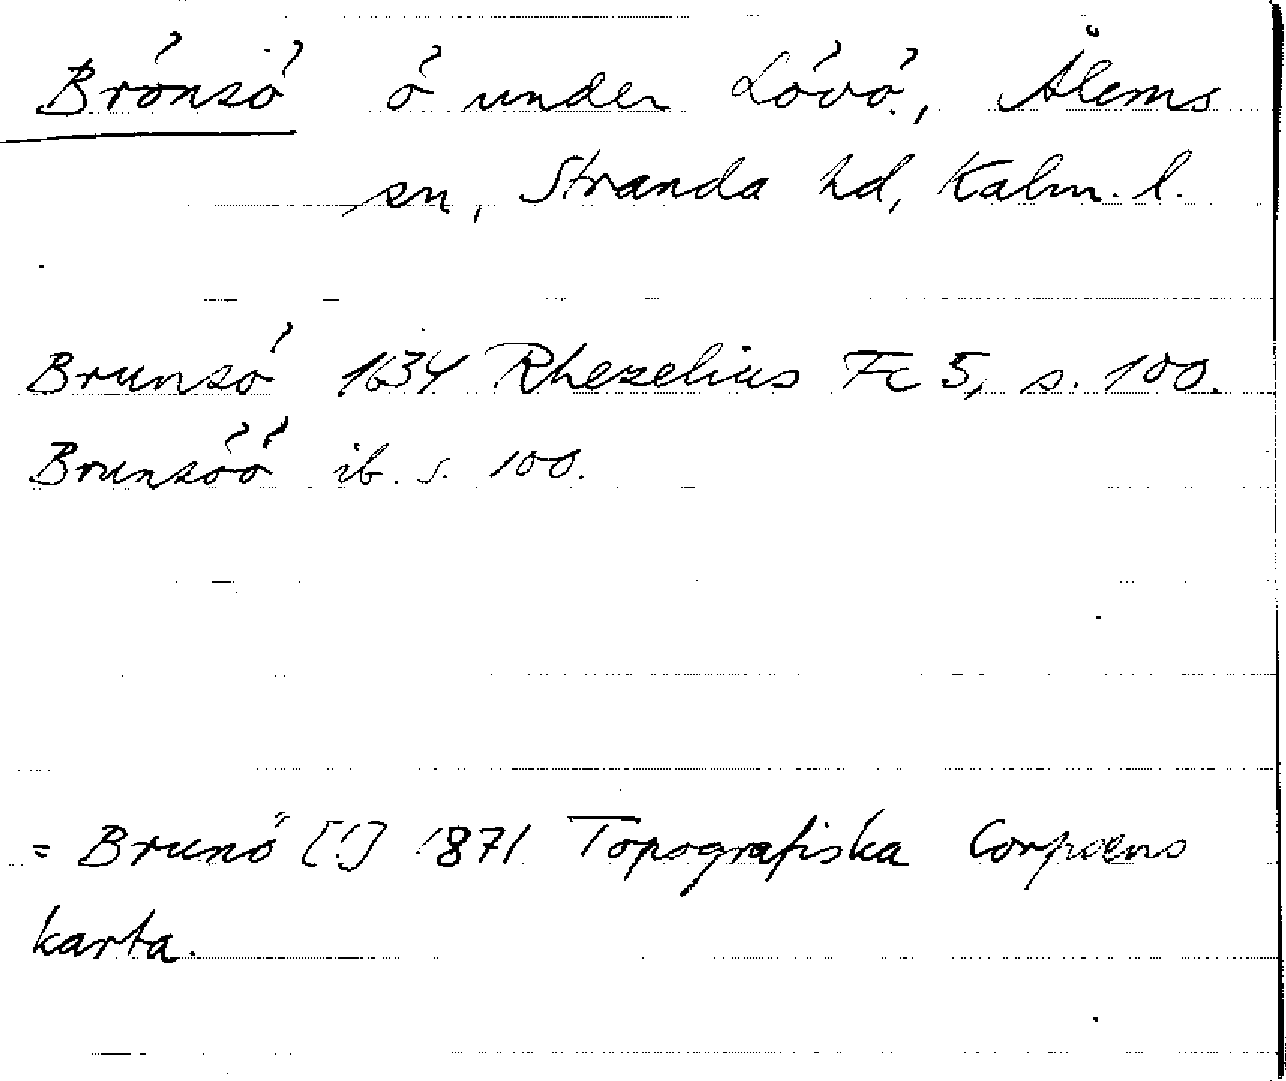 Brönsö ö under Lövö, Ålems
sn, Stranda hd, Kalm. l.
Brunsö 1634 Rhezelius Fc 5, s. 100.
Brunsöö ib. s. 100.
= Brunö [!] 1871 Topografiska Corpsens
karta.